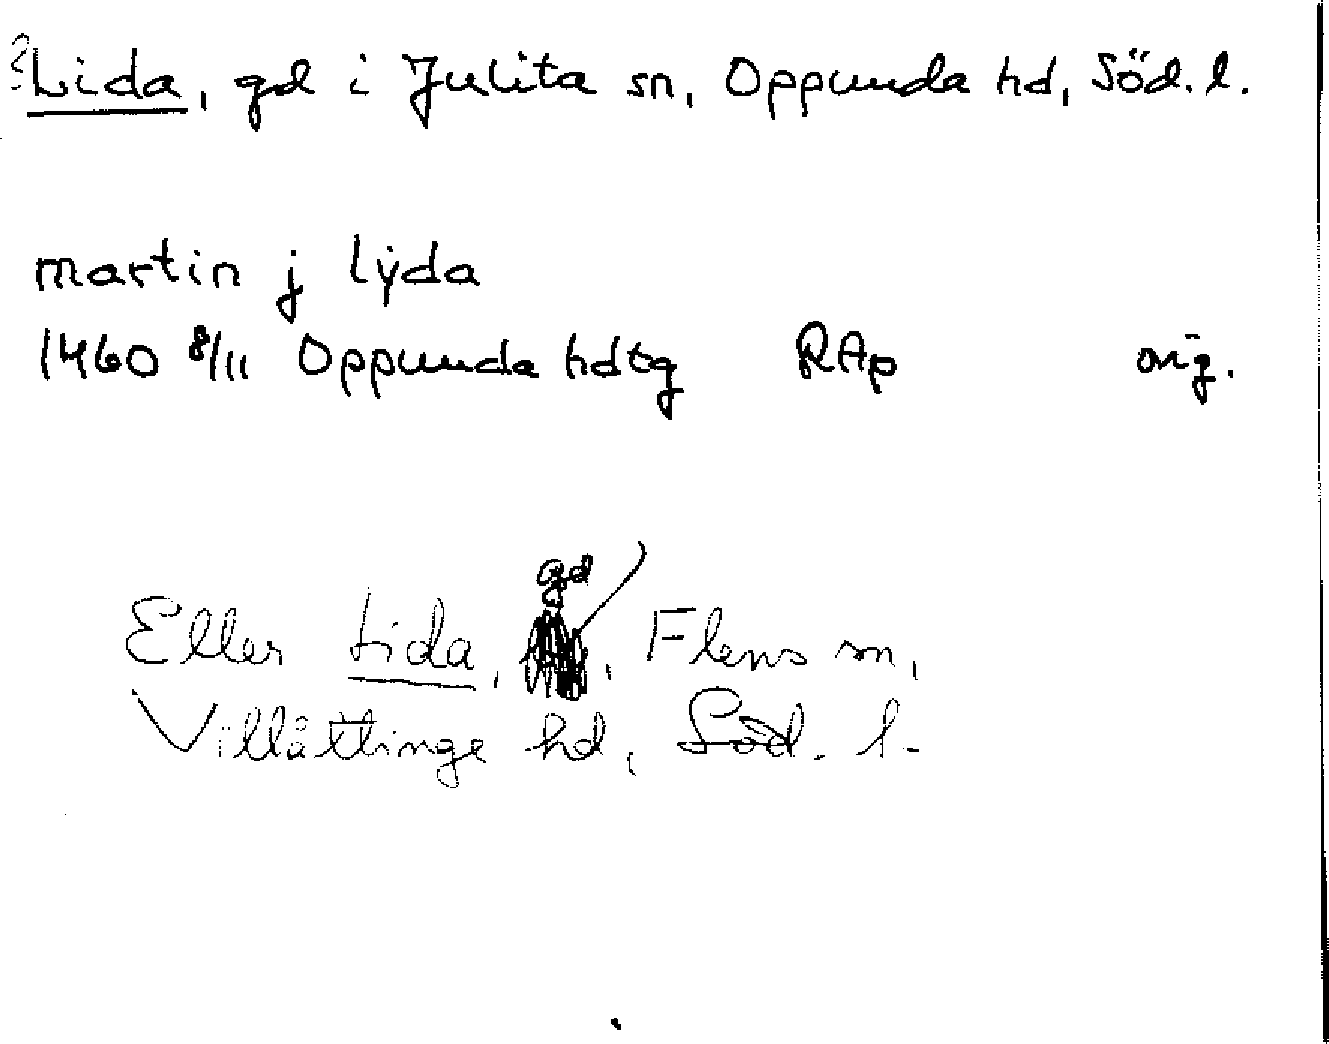 ? Lida, gd i Julita sn, Oppunda hd, Söd. l.
martin j lÿda
1460 8/11 Oppunda hdtg RAp orig.
gd
Eller Lida, , Flens sn,
Villåttinge hd, Söd. l.